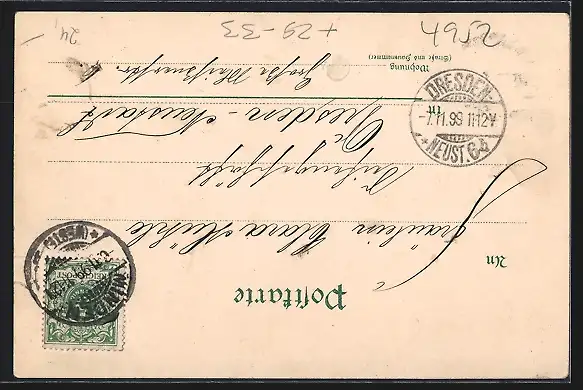 Postkarte
An
Fräulein Clara Mühle
in
Dresden - Neustadt
Wohnung
(Straße und Hausnummer)
Große Meißnerstr.
DRESDEN-
-7.11.99 11-12V
* NEUST. 6 *
REICHSPOST
(WESTF.)
4952
+ 29-33
24